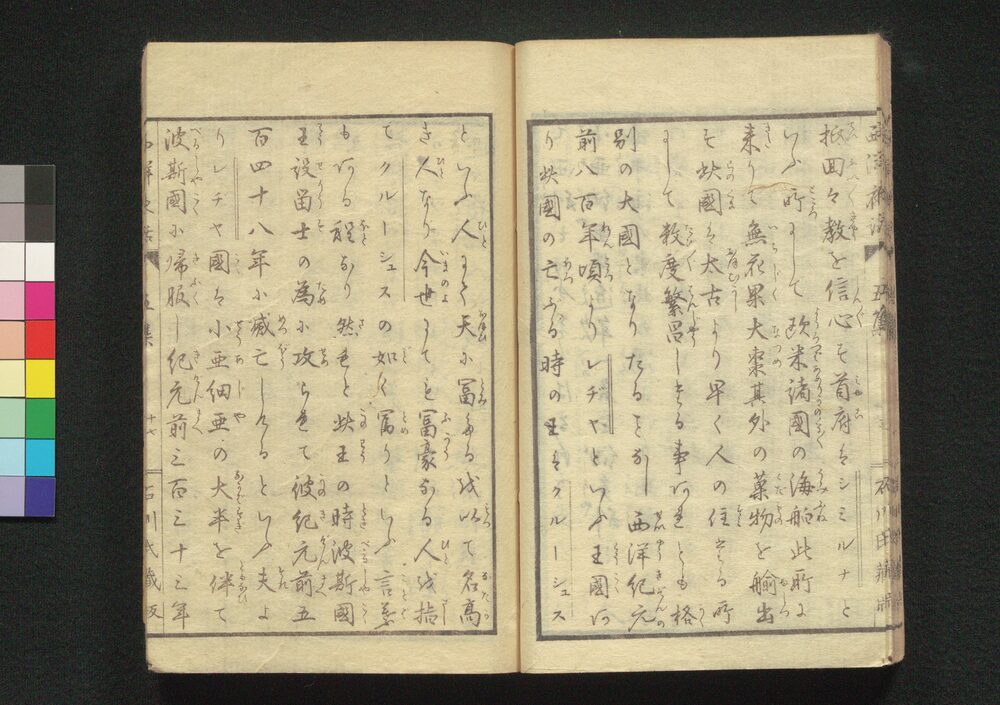 抵回々教を信心す首府はシミルナと
いふ所にして欧米諸國の海舶此所に
来りて無花果大棗其外の菓物を輸出
す此國は太古より早く人の住する所
にして数度繁昌しまる事ありとも格
別の大國となりたるをなし西洋紀元
前八百年頃よりレヂヤといふ王國あ
り此國の亡ぶる時の王はクルーシュス
といふ人にて天に冨める以て名高
き人なり今世にても冨豪なる人を指
てクルーシュスの如く冨りといふ言葉
もある程なり然るに此王の時波斯國
王設留士の為に攻られて彼紀元前五
百四十八年に滅亡しけるといふ夫よ
りレチヤ國は小亜細亜の大半を併て
波斯國に帰服し紀元前三百三十三年
五集
十七
石川氏蔵版